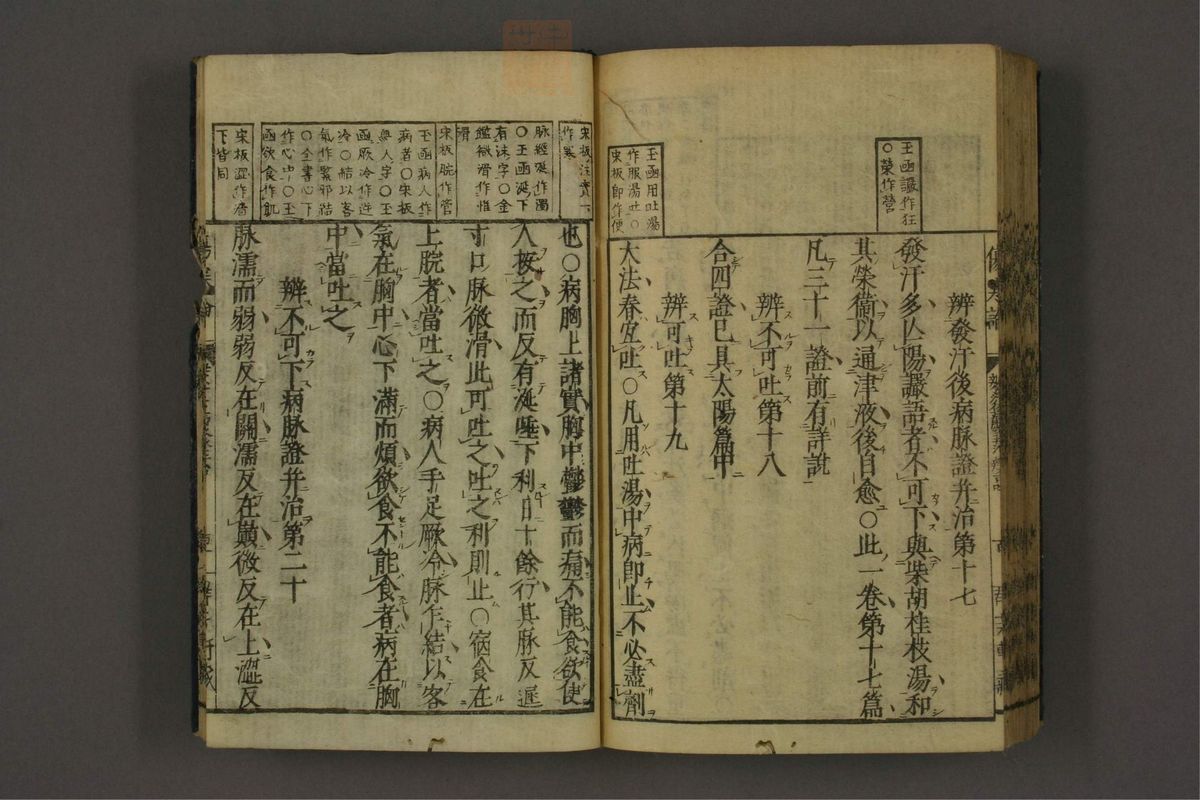 王函讝作狂
○榮作營
辨發汗後病脉證并治第十七
發汗多亾陽讝語者不可下與柴胡桂枝湯和
其榮衞以通津液後自愈○此一卷第十七篇
凡三十一證前有詳說
辨不可吐第十八
合四證已具太陽篇中
辨可吐第十九
王函用吐湯
作服湯吐○
宋板即作便
大法春宜吐○凡用吐湯中病即止不必盡劑
宋板注實下
作寒
也○病胸上諸實胸中鬱鬱而痛不能食欲使
脉經涎作濁
○王函涎下
有沫字○金
鑑微滑作惟
滑
人按之而反有涎唾下利日十餘行其脉反遲
寸口脉微滑此可吐之吐之利則止○宿食在
宋板脘作管
上脘者當吐之○病人手足厥冷脉乍結以客
王函病人作
病者○宋板
無人字○王
函厥冷作逆
冷○結以客
氣作緊邪結
○全書心下
作心中○王
函欲食作飢
氣在胸中心下滿而煩欲食不能食者病在胸
中當吐之
辨不可下病脉證并治第二十
宋板澀作濇
下皆同
脉濡而弱弱反在關濡反在巔微反在上澀反
傷寒論